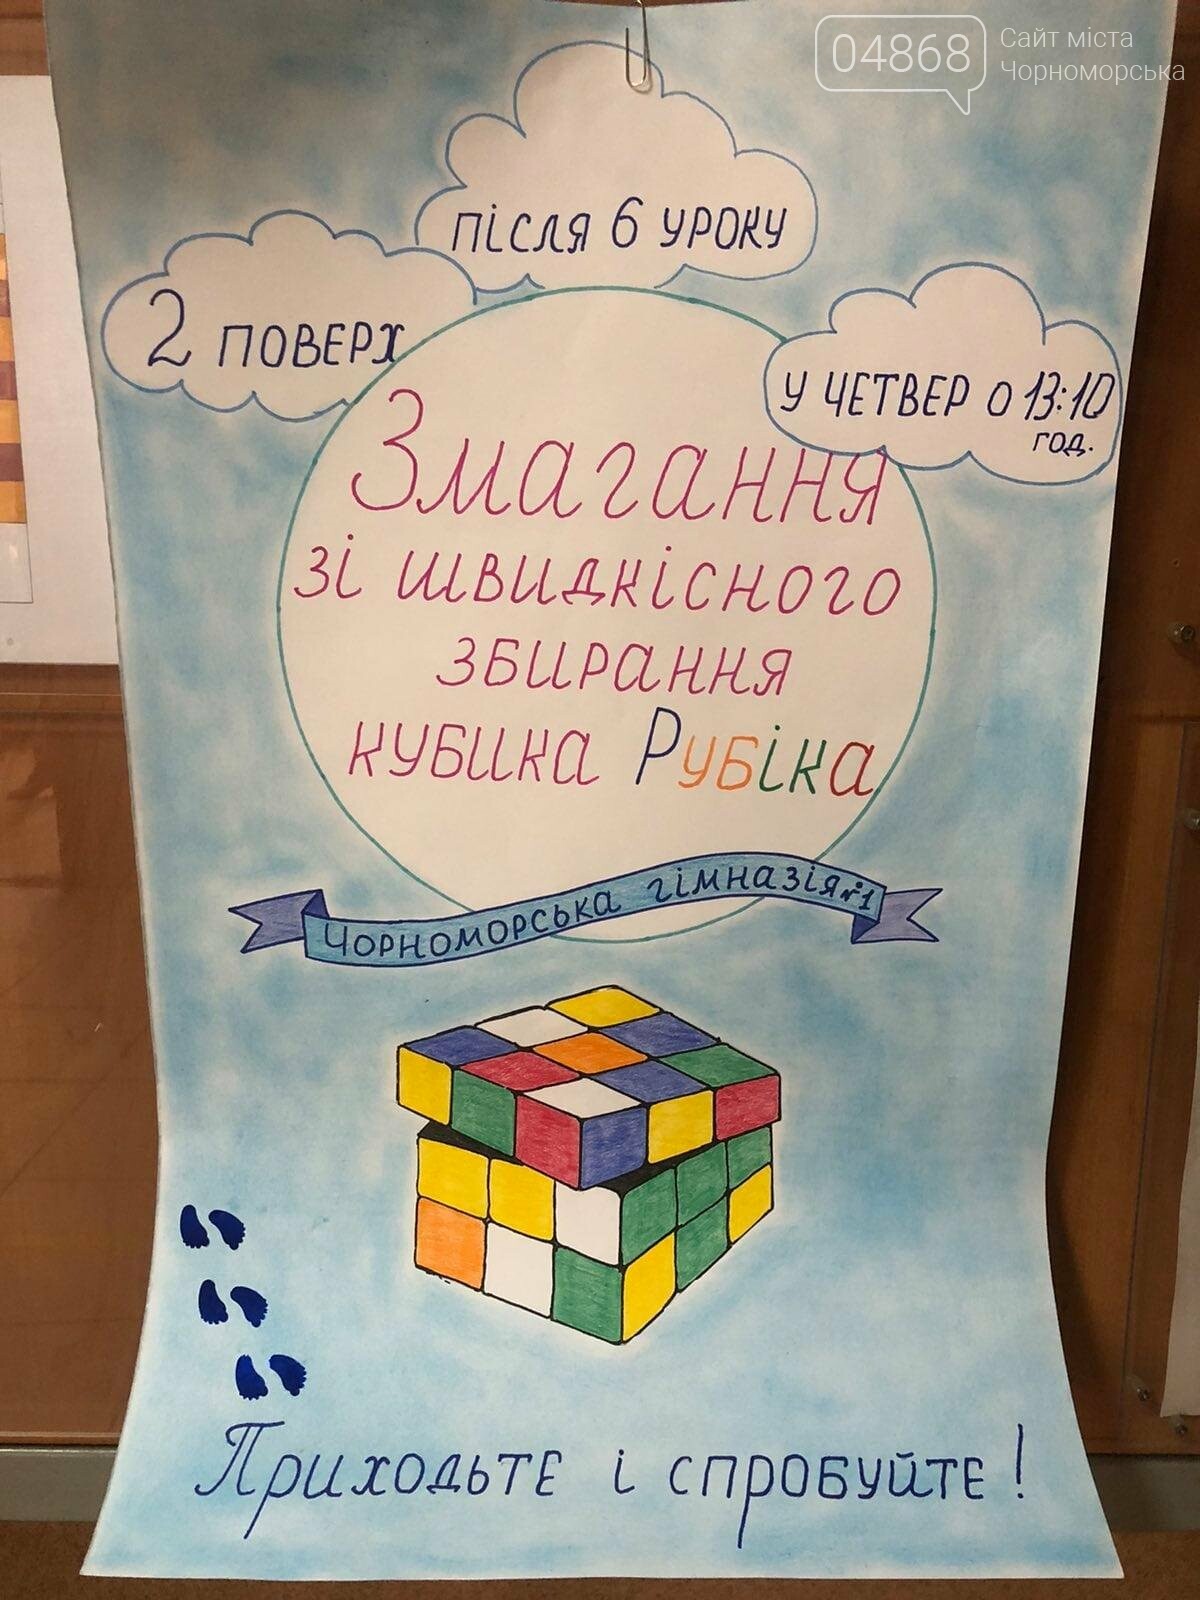 04868
Сайт міста
Чорноморська
після 6 уроку
2 поверх
у четвер о 13:10
год.
Змагання
зі швидкісного
збирання
кубика Рубіка
Чорноморська гімназія №1
Приходьте і спробуйте!